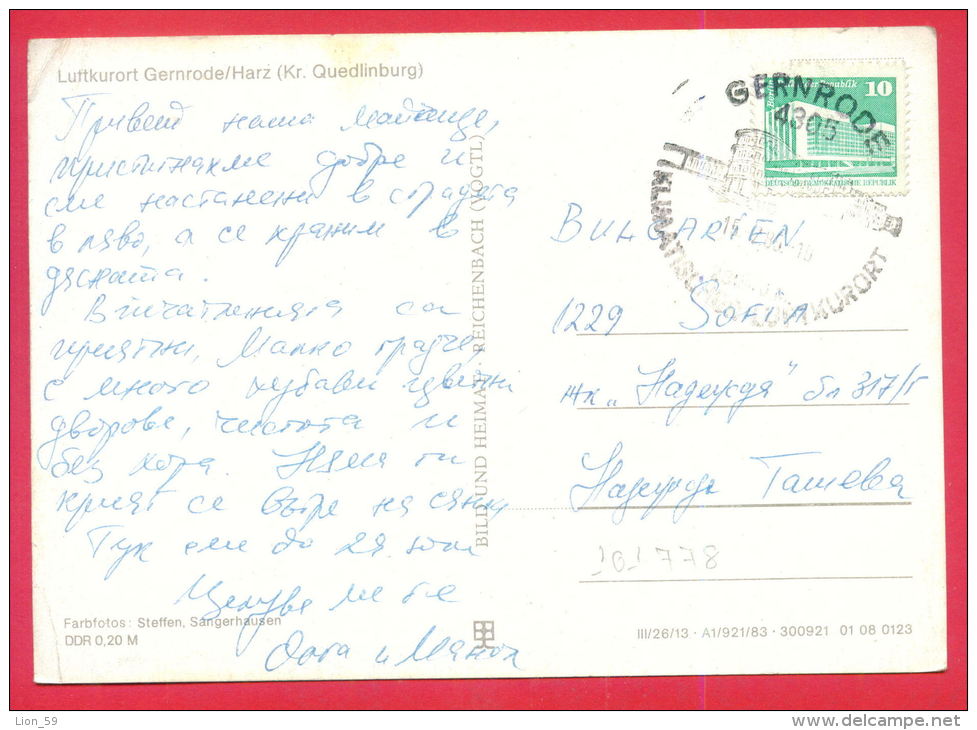 Luftkurort Gernrode/Harz (Kr. Quedlinburg)
Привет наша майчице,
пристигнахме добре и
сме настанени в сградата
в ляво, а се храним в
дясната.
Впечатленията са
приятни, Малко градче,
с много хубави цветни
дворове, чистота и
без хора. Няма ги
крият се вътре на сянка
Тук сме до 29. юли
Целуваме те
и
Farbfotos: Steffen, Sangerhausen
DDR 0,20 M
BILD UND HEIMAT REICHENBACH (VOGTL)
GERNRODE
4305
10
DEUTSCHE DEMOKRATISCHE REPUBLIK
LUFTKURORT
BULGARIEN
1229 SOFIA
жк „Надежда" бл 317/Г
Надежда Ташева
101778
III/26/13 · A1/921/83 · 300921 01 08 0123
Lion_59
www.delcampe.net